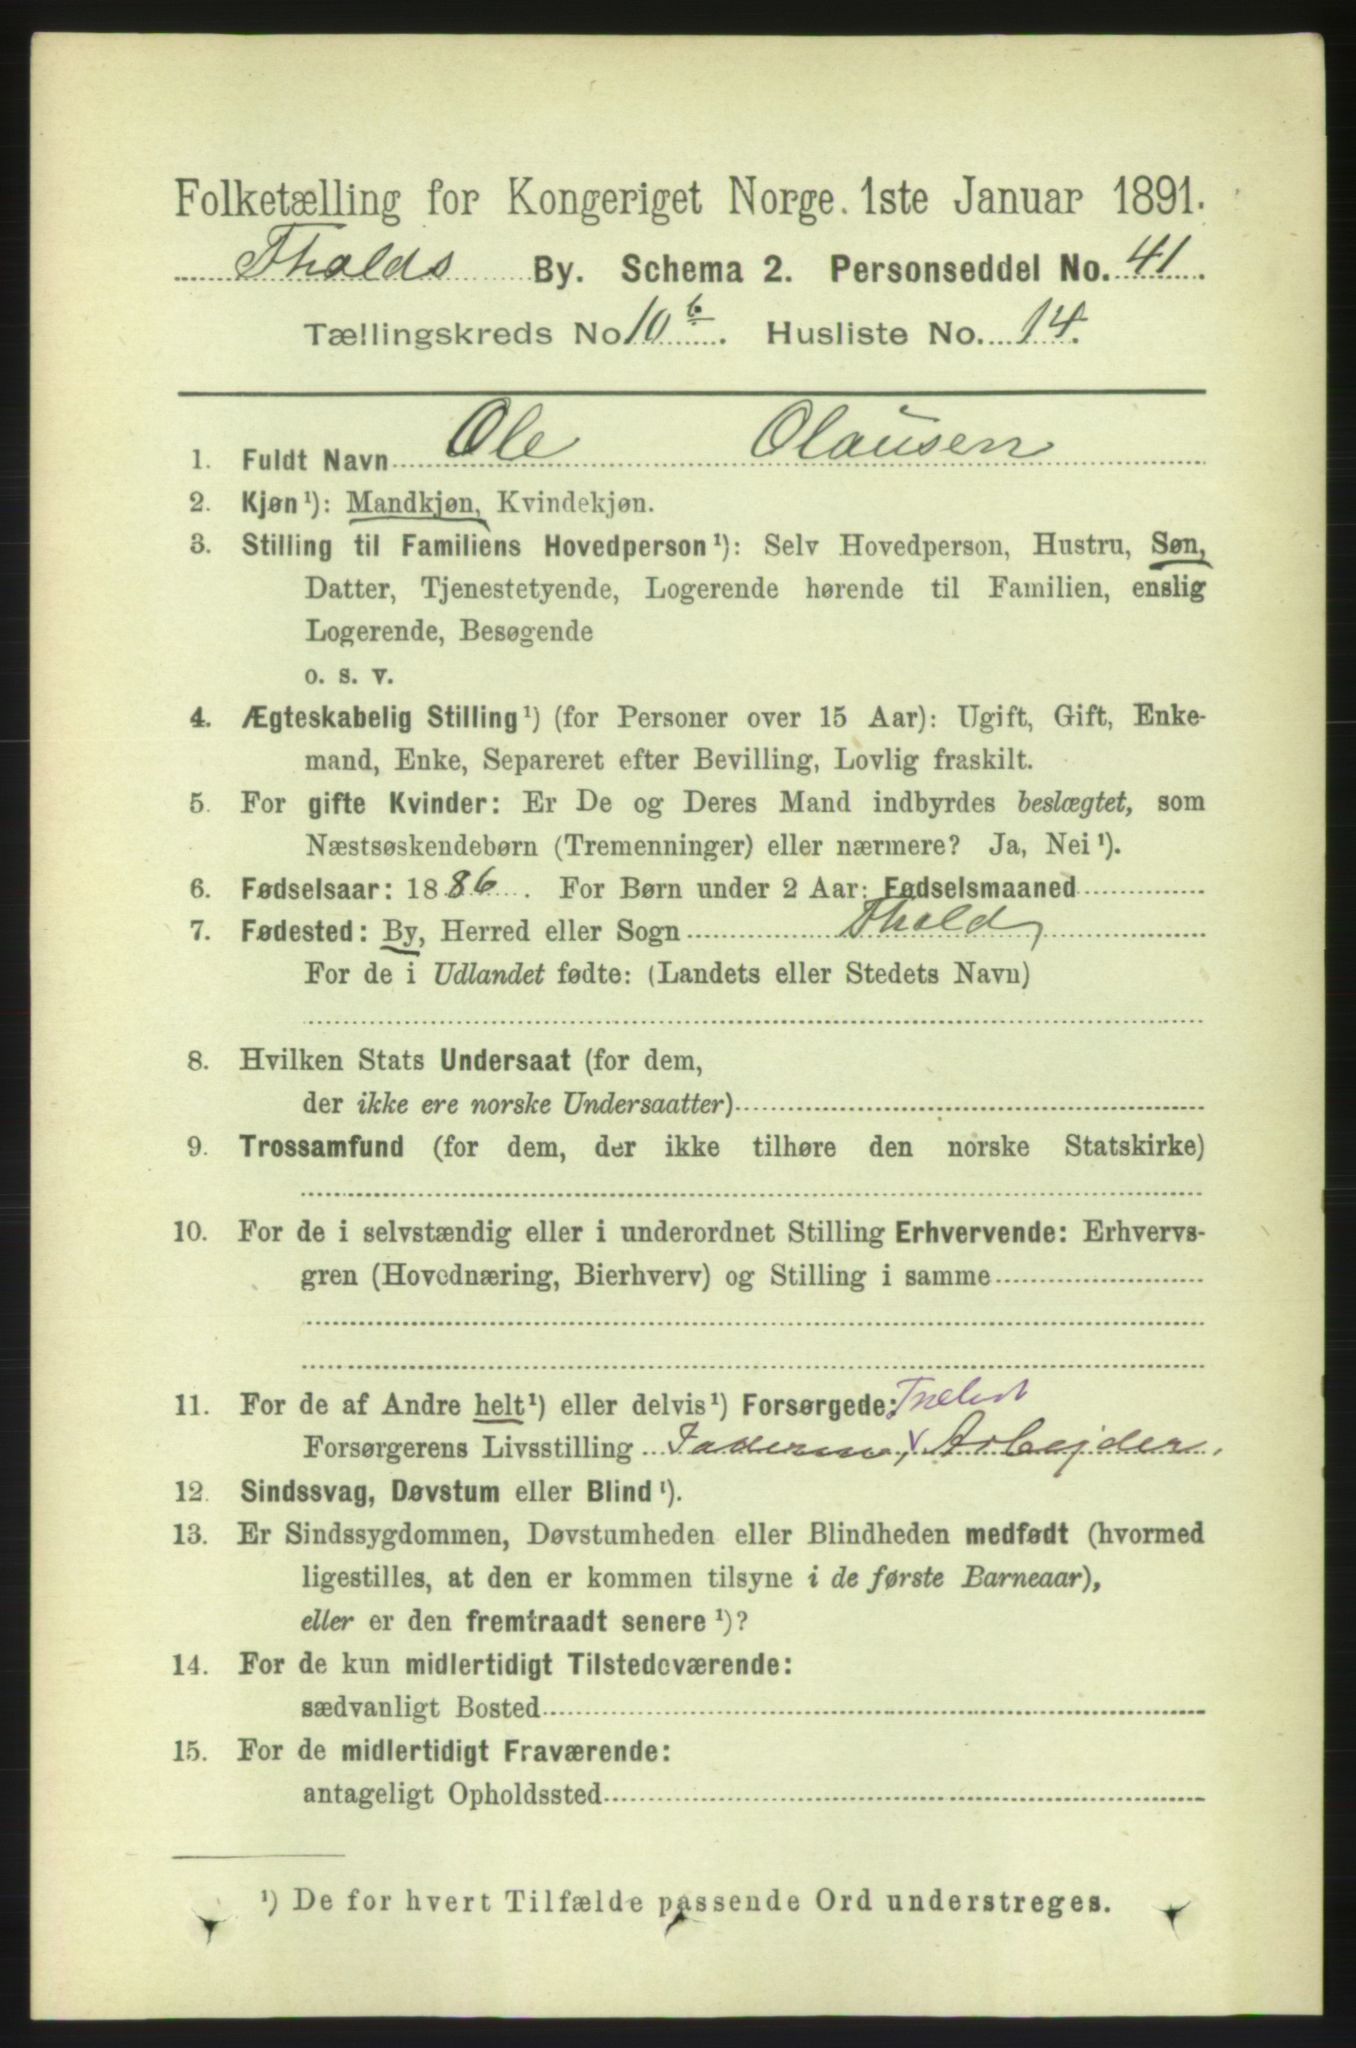 Folketælling for Kongeriget Norge. 1ste Januar 1891.
Fhalds By. Schema 2. Personseddel No. 41.
Tællingskreds No 10 b. Husliste No. 14.
1. Fuldt Navn Ole Olausen
2. Kjøn¹): Mandkjøn, Kvindekjøn.
3. Stilling til Familiens Hovedperson¹): Selv Hovedperson, Hustru, Søn,
Datter, Tjenestetyende, Logerende hørende til Familien, enslig
Logerende, Besøgende
o. s. v.
4. Ægteskabelig Stilling¹) (for Personer over 15 Aar): Ugift, Gift, Enke-
mand, Enke, Separeret efter Bevilling, Lovlig fraskilt.
5. For gifte Kvinder: Er De og Deres Mand indbyrdes beslægtet, som
Næstsøskendebørn (Tremenninger) eller nærmere? Ja, Nei¹).
6. Fødselsaar: 1886. For Børn under 2 Aar: Fødselsmaaned
7. Fødested: By, Herred eller Sogn Fhald,
For de i Udlandet fødte: (Landets eller Stedets Navn)
8. Hvilken Stats Undersaat (for dem,
der ikke ere norske Undersaatter)
9. Trossamfund (for dem, der ikke tilhøre den norske Statskirke)
10. For de i selvstændig eller i underordnet Stilling Erhvervende: Erhvervs-
gren (Hovednæring, Bierhverv) og Stilling i samme
11. For de af Andre helt¹) eller delvis¹) Forsørgede: Trælast
Forsørgerens Livsstilling Faderen, Arbejder.
12. Sindssvag, Døvstum eller Blind¹).
13. Er Sindssygdommen, Døvstumheden eller Blindheden medfødt (hvormed
ligestilles, at den er kommen tilsyne i de første Barneaar),
eller er den fremtraadt senere¹)?
14. For de kun midlertidigt Tilstedeværende:
sædvanligt Bosted
15. For de midlertidigt Fraværende:
antageligt Opholdssted
¹) De for hvert Tilfælde passende Ord understreges.